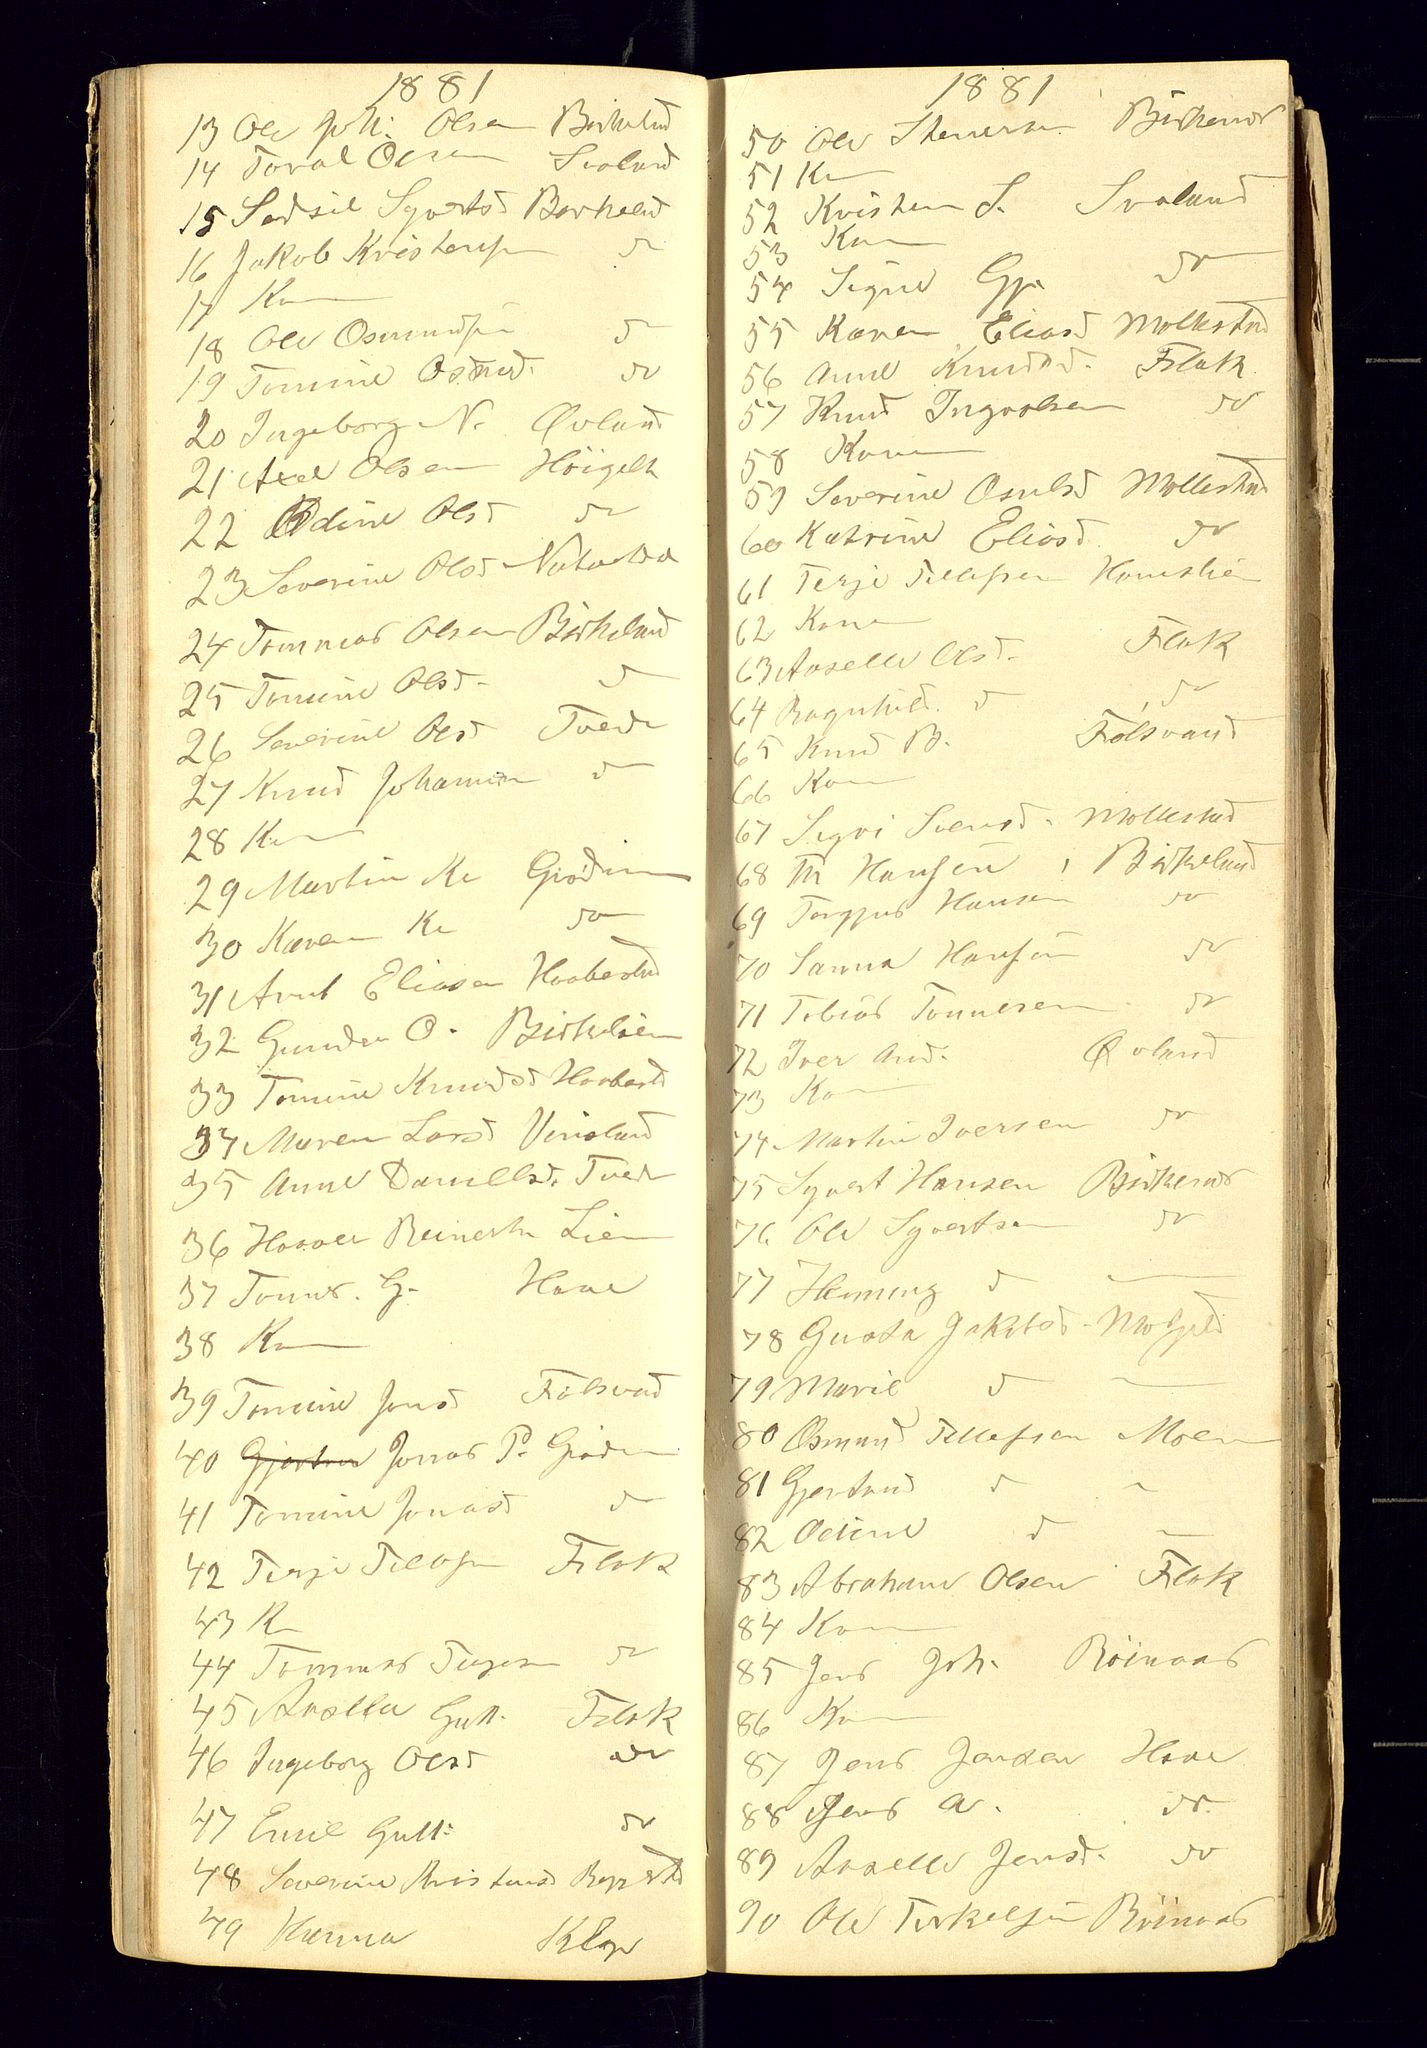 1881
13 Ole Joh: Olsen Birkelnd
14 Toral Olsen Svaland
15 Sedsil Syvertsd Birkelnd
16 Jakob Kristensen do
17 Kn
18 Ole Osmundsen do
19 Tomine Osmd. do
20 Ingeborg N. Øvland
21 Axel Olsen Höigelt
22 Odine Olsd do
23 Severine Olsd
24 Tommas Olsen Birkeland
25 Tomine Olsd. do
26 Severine Olsd Tvede
27 Knud Johannsen do
28 Kn
29 Martin Kr Grödum
30 Karen Kr do
31 Arnt Eliasen Haabestad
32 Gunder O. Birkelien
33 Tomine Knudsd Haabestd
34 Maren Larsd Vinsland
35 Anne Daniellsd. Tvede
36 Havver Reinertsn Lien
37 Tomas. G. Haave
38 Kn
39 Tomine Jensd Fölsvad
40 Jonas P. Grödum
41 Tomine Jonasd do
42 Terje Tellefsen Flak
43 Kn
44 Tommas Terjesen do
45 Aaselle Gutt. Flak
46 Ingeborg Olsd do
47 Emil Gutt: do
48 Severine Kristensd
49 Hanna Klep
1881
50 Ole Stenersen Birkenes
51 Kn
52 Kristen S. Svaland
53 Kon
54 Signe Gj. do
55 Karen Eliasd Mollestad
56 Anne Knudsd. Flak
57 Knud Ingvalsen do
58 Kone
59 Severine Osulsd Mollestad
60 Katrine Eliasd do
61 Terje Tellefsen
62 Kone
63 Aaselle Olsd. Flak
64 Ragnhild. d do
65 Knud B. Fölsvand
66 Kon
67 Sigri Svensd. Mollestad
68 Th Hansen Birkeland
69 Torgjus Hansen do
70 Sanna Hansen do
71 Tobias Tommesen do
72 Iver And. Øvland
73 Kon
74 Martin Iversen do
75 Syvert Hansen Birkenes
76 Ole Syvertsen do
77 Henning d
78 Gusta Jakobsd.
79 Marie d
80 Osmund Tellefsen Moen
81 Gjertand d
82 Odine d
83 Abraham Olsen Flak
84 Kon
85 Jens Joh. Röinaas
86 Kon
87 Jens Jensen Haave
88 Jens A. do.
89 Aaselle Jensd. do
90 Ole Terkelsen Röinaas